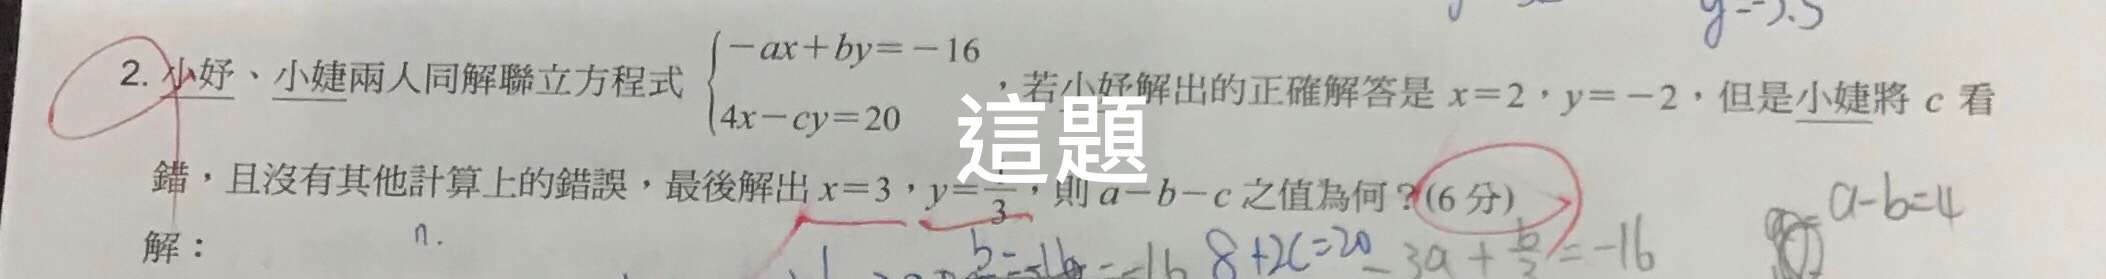 y=-5.5
2. 小妤、小婕兩人同解聯立方程式 {-ax+by=-16, 4x-cy=20 ,若小妤解出的正確解答是 x=2,y=-2,但是小婕將 c 看
這題
錯,且沒有其他計算上的錯誤,最後解出 x=3,y=1/3,則 a-b-c 之值為何?(6 分)
a-b=4
解:
n.
8+2c=20
-3a+b/3=-16